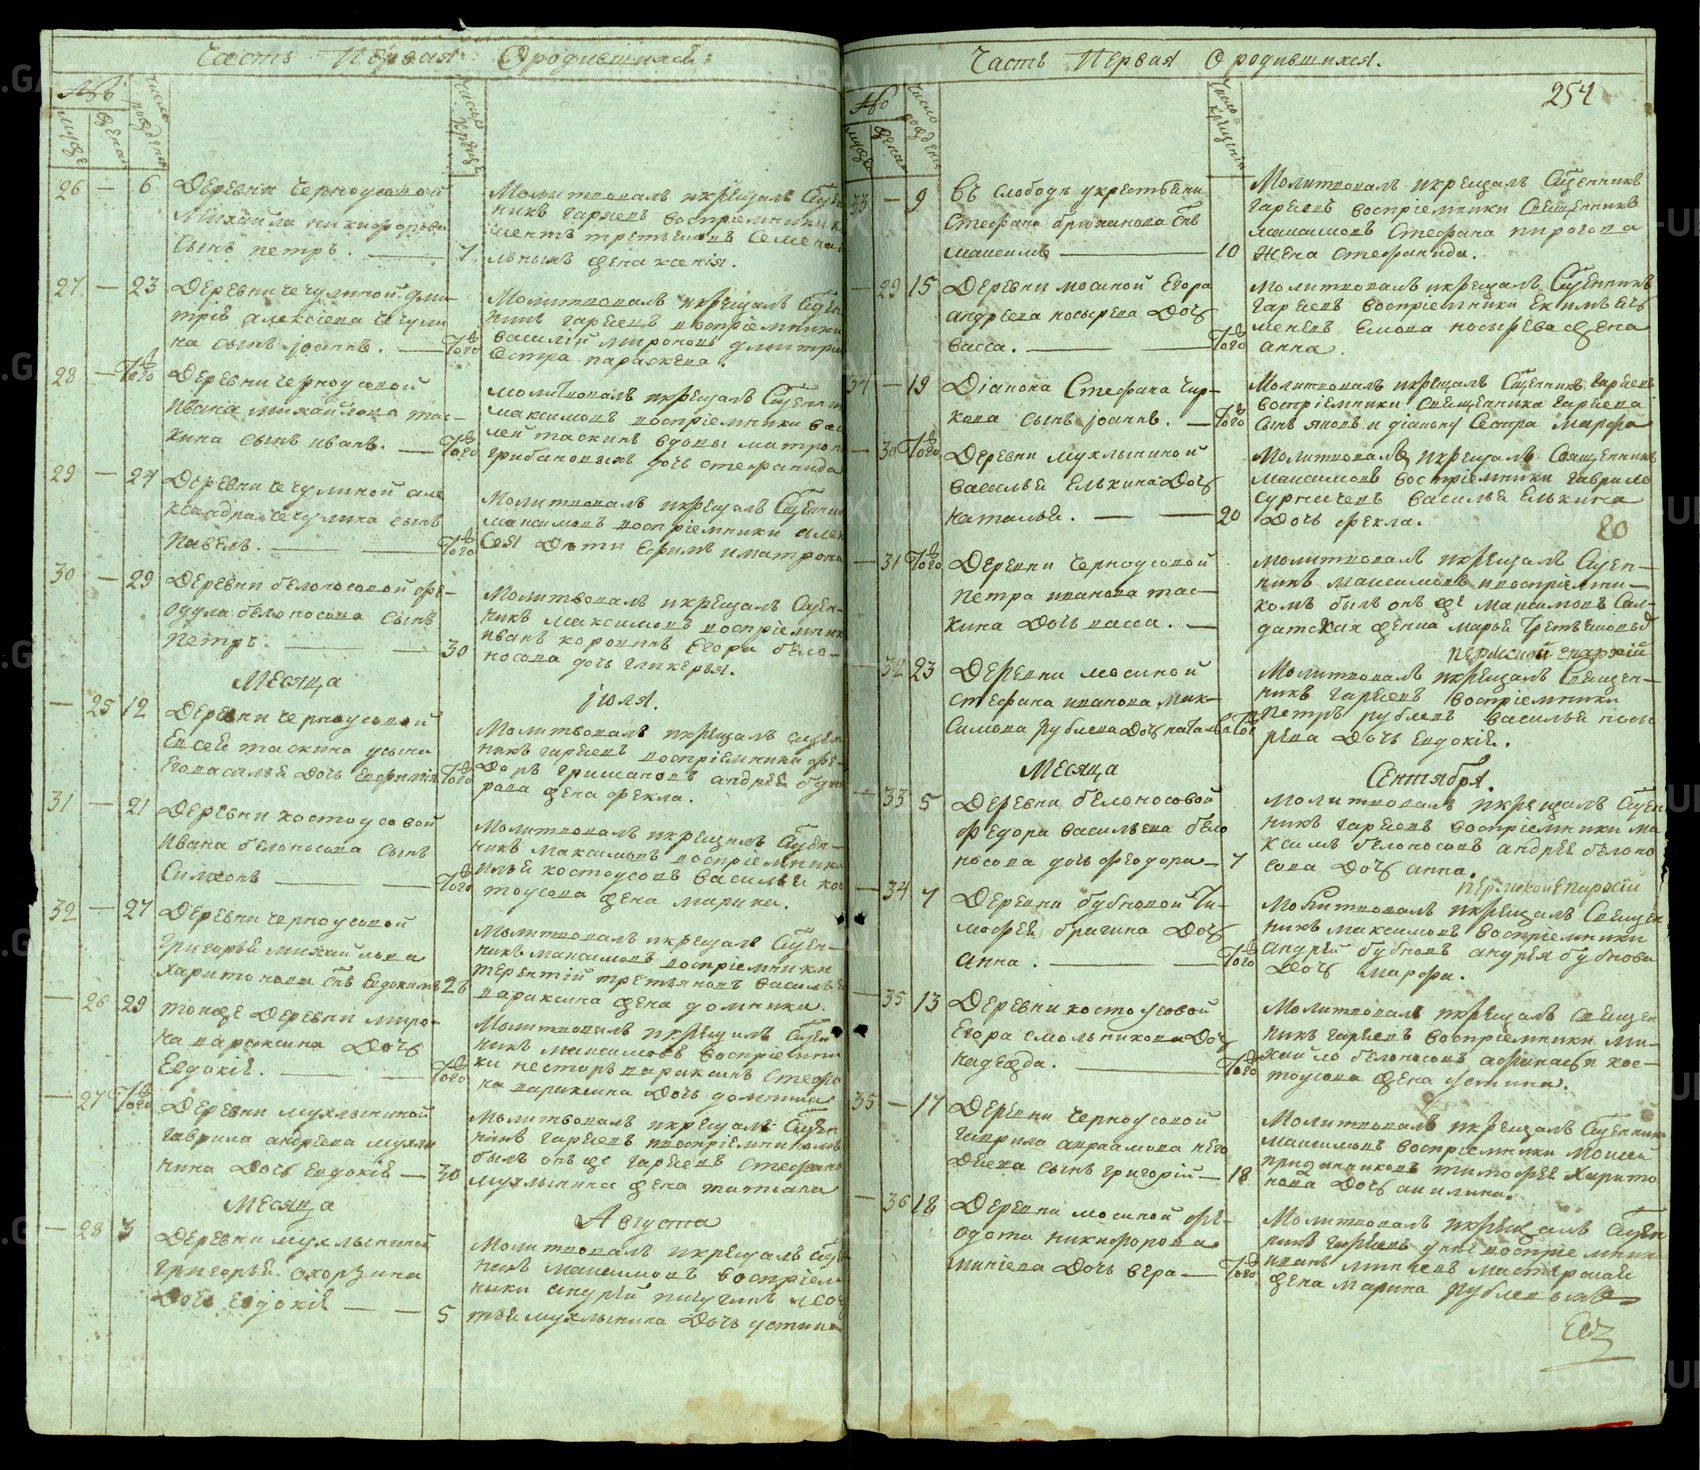 Часть Первая Ородившихся:
№
мужс
женск
число рождения
число крещен
26 — 6 Деревни Черноусовой
Михаила никифорова
сынъ петръ. — 7
Молитвовалъ икрещалъ Сщен
никъ гаряевъ воспріемники к
третьяковъ Семена
жена ксенія.
27 — 23 Деревни чечулиной дми
трія алексіева чечули
на сынъ іоаннъ. — Того
Молитвовалъ икрещалъ Сщен
никъ гаряевъ воспріемники
василій мироновъ дмитрія
сестра параскева.
28 — Того Деревни черноусовой
Ивана михайлова тас-
кина сынъ иванъ. — Того
молитвовалъ икрещалъ Сщенник
максимовъ воспріемники васи
лей таскинъ вдовы матрон
грибановыхъ дочь стефанида
29 — 27 Деревни чечулиной але
ксандра чечулина сынъ
павелъ. — Того
Молитвовалъ икрещалъ Сщенник
максимовъ воспріемники алек
сея дѣти Ефимъ иматрона
30 — 29 Деревни бѣлоносовой фе-
одула бѣлоносова сынъ
петръ. — 30
Молитвовалъ икрещалъ Сщен-
никъ максимовъ воспріемник
иванъ коровинъ Егора бѣло-
носова дочь гликерья.
Месяца іюля.
— 25 12 Деревни черноусовой
Евсея таскина усына
Его василья дочь Евфимія Того
Молитвовалъ икрещалъ сщен
никъ гаряевъ воспріемники фе-
доръ гришановъ андрея
жена фекла.
31 — 21 Деревни костоусовой
Ивана бѣлоносова сынъ
Симеонъ — Того
Молитвовалъ икрещалъ Сщен-
никъ максимовъ воспріемники
Илья костоусовъ василья кос
тоусова жена марина.
32 — 27 Деревни черноусовой
григорья михайлова
харитонова снъ Евдокимъ 28
Молитвовалъ икрещалъ Сщен-
никъ максимовъ воспріемники
терентій третьяковъ василья
параксина жена домника.
— 26 29 тояже деревни миро-
на параксина Дочь
Евдокія. — Того
Молитвовалъ икрещалъ Сщен
никъ максимовъ воспріемни
ки несторъ параксинъ стефа
на параксина Дочь домника
— 27 Того Деревни мухлыниной
гаврила андреева мухлы
нина Дочь Евдокія — 30
Молитвовалъ икрещалъ Сщен
никъ гаряевъ воспріемникомъ
былъ онъ же гаряевъ стефана
мухлынина жена татиана
Месяца Августа
— 28 3 Деревни мухлыниной
григорья скорзина
Дочь Евдокія — 5
Молитвовалъ икрещалъ Сщен
никъ максимовъ воспріем
ники андрей пичугинъ
тья мухлынина Дочь устиния
Часть Первая Ородившихся.
254
№
мужс
женск
число рождения
число крещения
33 — 9 Въ слободѣ укрестьяни
Стефана брюханова снъ
максимъ — 10
Молитвовалъ икрещалъ Сщенникъ
гаряевъ воспріемники Священникъ
максимовъ Стефана пирогова
жена стефанида.
— 29 15 Деревни мосиной Егора
андреева носырева Дочь
васса. — Того
Молитвовалъ икрещалъ Сщенникъ
гаряевъ воспріемники
носырева жена
анна.
34 — 19 Діакона Стефана чир-
кова сынъ іоаннъ. — Того
Молитвовалъ икрещалъ Сщенникъ гаряевъ
воспріемники священника гаряева
сынъ яковъ и діакону сестра марфа
— 30 Того Деревни мухлыниной
василья Елькина Дочь
наталья. — 20
Молитвовалъ икрещалъ Священникъ
максимовъ воспріемники гаврило
василья Елькина
Дочь фекла.
— 31 Того Деревни черноусовой
петра иванова тас-
кина Дочь васса. —
молитвовалъ икрещалъ Сщен-
никъ максимовъ ивоспріемни-
комъ былъ онъ же максимовъ Сол-
датская женка марья третьяковыхъ
пермской епархіи
— 32 23 Деревни мосиной
стефана иванова мак-
симова рублева Дочь наталья Того
Молитвовалъ икрещалъ Священ-
никъ гаряевъ воспріемники
петръ рублевъ василья носы
рева Дочь Евдокія.
Месяца Сентября.
— 33 5 Деревни бѣлоносовой
федора васильева бѣло
носова дочь феодора — 7
Молитвовалъ икрещалъ Сщен
никъ гаряевъ воспріемники ма
ксимъ бѣлоносовъ андрея бѣлоно
сова Дочь анна.
пермской епархіи
— 34 7 Деревни бубновой ти-
мофея брагина Дочь
анна. — Того
Молитвовалъ икрещалъ Священ
никъ максимовъ воспріемники
андрей бубновъ андрея бубнова
Дочь марфа.
— 35 13 Деревни костоусовой
Егора смольникова Дочь
надежда. — Того
Молитвовалъ икрещалъ священ
никъ гаряевъ воспріемники ми-
хайло бѣлоносовъ афанасья кос-
тоусова жена устинья.
35 — 17 Деревни черноусовой
гаврила авраамова него
дяева сынъ григорій — 18
Молитвовалъ икрещалъ Сщенникъ
максимовъ воспріемники моисей
приданниковъ тимофея харито
нова Дочь акилина.
— 36 18 Деревни мосиной фе-
дота никифорова
минѣева Дочь вера — Того
Молитвовалъ икрещалъ Сщен
никъ гаряевъ воспріемники
иванъ минѣевъ мастерской
жена марина рублевыхъ